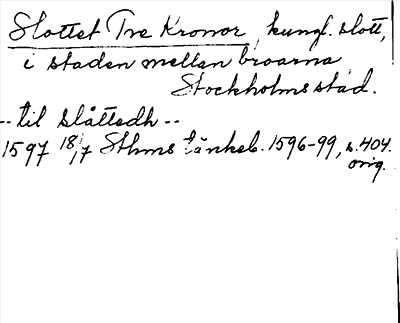 Slottet Tre Kronor, kungl. slott,
i staden mellan broarna
Stockholms stad.
-- til slåttedh --
1597 18/7 Sthms tänkeb. 1596-99, s. 404.
orig.